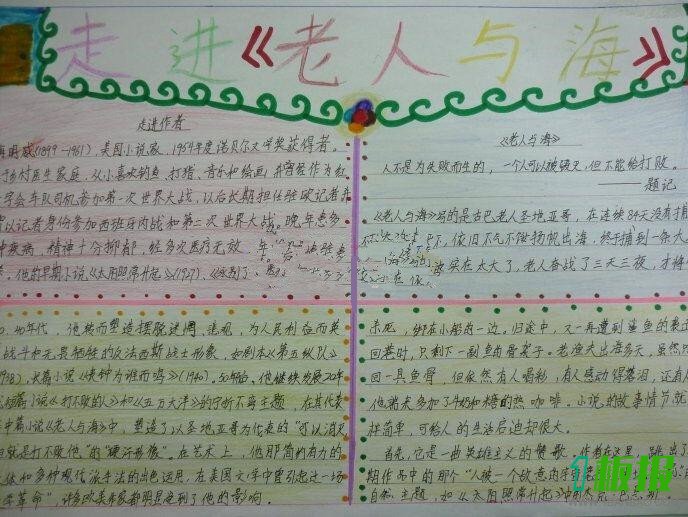 走进《老人与海》
走进作者
明威(1899-1961),美国小说家,1954年度诺贝尔文学奖获得者。
于乡村医生家庭,从小喜欢钓鱼、打猎、音乐和绘画,曾作为红
十字会车队司机参加第一次世界大战,以后长期担任驻欧记者并
以记者身份参加西班牙内战和第二次世界大战。晚年患多
种疾病,精神十分抑郁,经多次医疗无效,
他的早期小说《太阳照常升起》(1927)、《永别了
40年代,他转而塑造摆脱迷惘、悲观,为人民利益而英
战斗和无畏牺牲的反法西斯战士形象,如剧本《第五纵队》
长篇小说《丧钟为谁而鸣》(1940)。50年代,他继续发展20年
短篇小说《打不败的人》和《五万大洋》的宁折不弯主题,在其代表
中篇小说《老人与海》中,塑造了以圣地亚哥为代表的"可以消灭
但就是打不败他"的"硬汉形象"。在艺术上,他那简约有力的
文体和多种现代派手法的出色运用,在美国文学中曾引起过一场
文学革命",许多欧美作家都明显受到了他的影响。
《老人与海》
人不是为失败而生的,一个人可以被毁灭,但不能给打败。
——题记
《老人与海》写的是古巴老人圣地亚哥,在连续84天没有捕
依旧不气不馁扬帆出海,终于捕到一条大
实在太大了,老人奋战了三天三夜,才将
杀死,绑在小船的一边,归途中,又一再遭到鲨鱼的袭
回港时,只剩下一副鱼的骨架子。老渔夫出海多天,虽然
回一具鱼骨,但依然有人喝彩,有人感动得落泪,还有人
他捎来多加了牛奶和糖的热咖啡。小说的故事情节就
样简单,可给人的生活启迪却很大。
首先,它是一曲英雄主义的赞歌。作者在这里,跳出了
期作品中的那个"人被一个敌意的
自然"主题,如《太阳照常升起》中的
板报